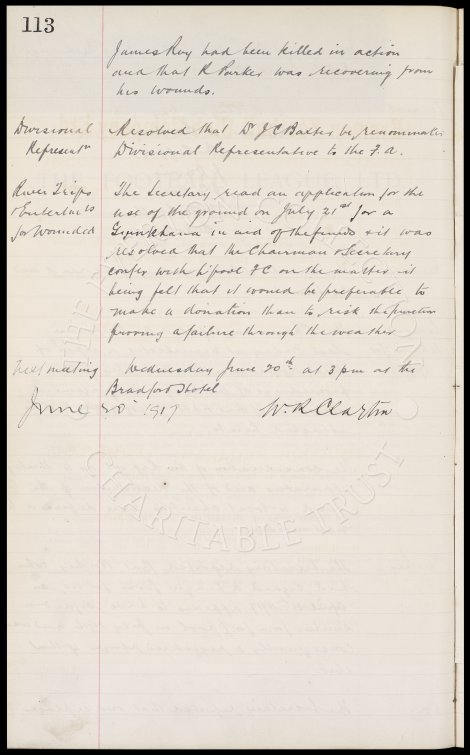 113
James Roy had been killed in action
and that R Parker was recovering from
his wounds.
Divisional Resolved that Dr J C Baxter be renominated
Represent'n Divisional Representative to the F.A.
River Trips The Secretary read an application for the
& Entertain'ts use of the ground on July 21st for a
for Wounded Gymkhana in aid of the funds & it was
resolved that the Chairman & Secretary
confer with L'pool F C on the matter it
being felt that it would be preferable to
make a donation than to risk the function
proving a failure through the weather
Next meeting Wednesday June 20th at 3 pm at the
Bradford Hotel
June 20 1917 W. R Clayton
CHARITABLE TRUST